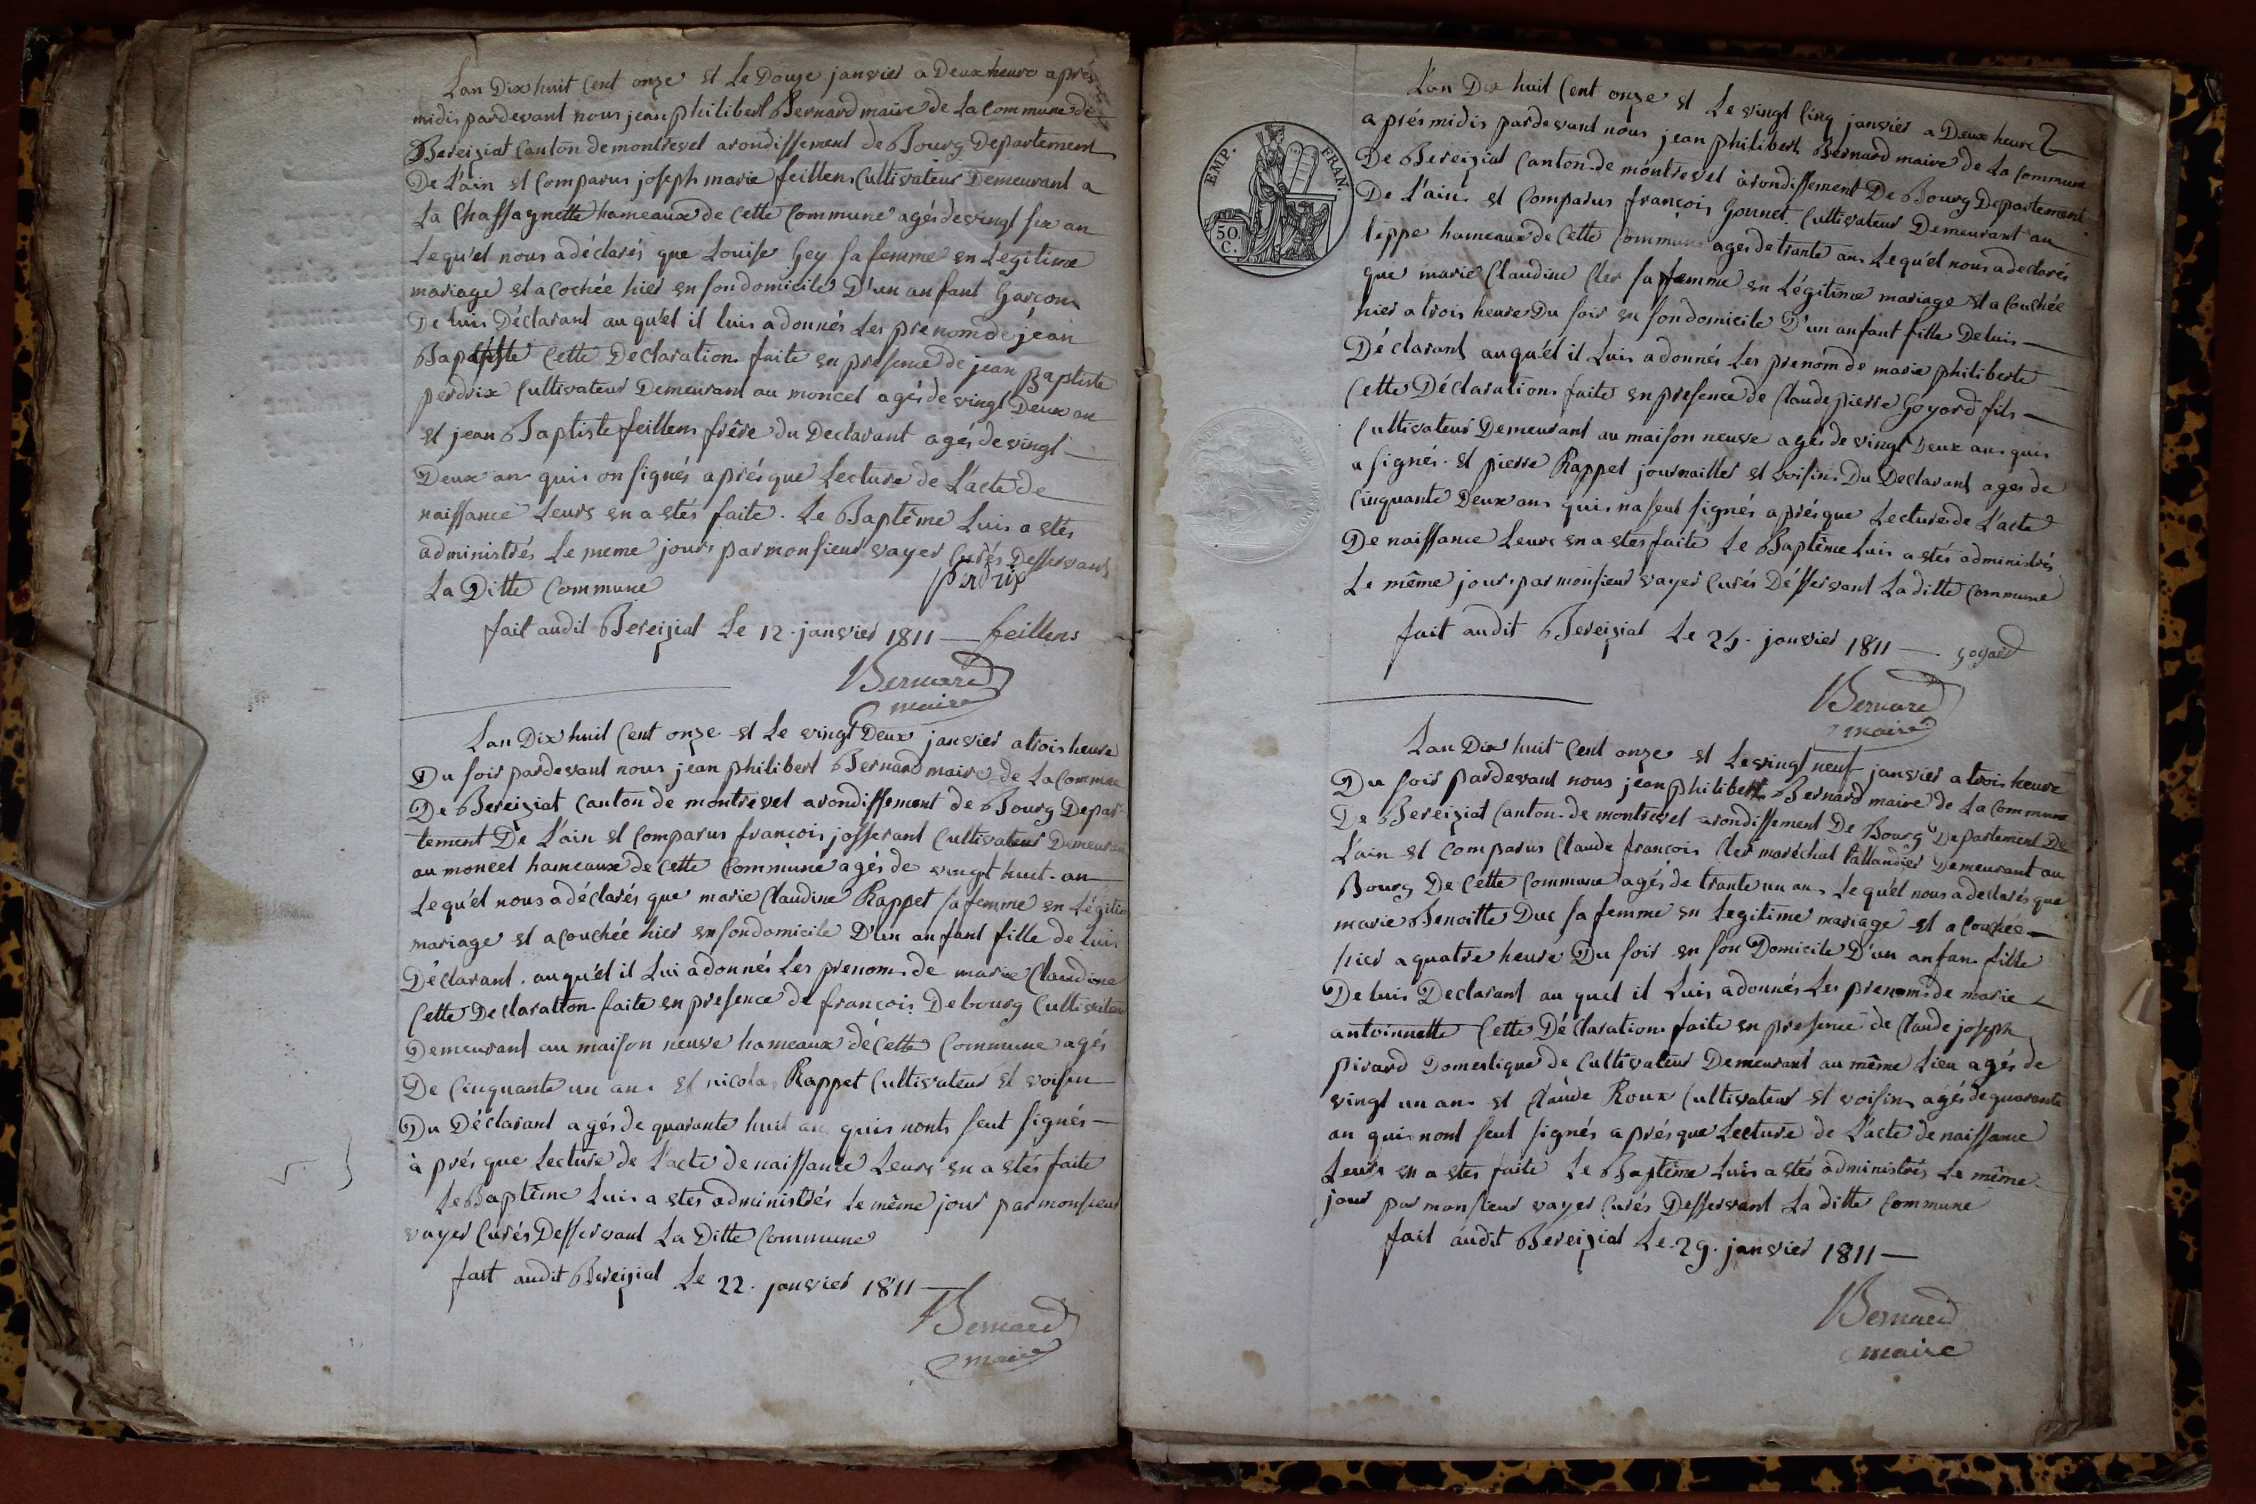 Lan Dix huit Cent onze et Le Douze janvier a Deux heure après
midis pardevant nous jean philibert Bernard maire de La Commune de
Bereiziat Canton de montrevel arondissement de Bourg Departement
De L'ain et Comparus joseph marie feillens Cultivateur Demeurant a
La Chassagnette hameaux de Cette Commune agés de vingt six an
Lequ'el nous a déclarés que Louise Gey sa femme en Legitime
mariage et a cochée hier en son domicile D'un anfant Garcon
De luis Déclarant auqu'el il luis a donnés Les prenom de jean
Baptiste Cette Declaration faite en presence de jean Baptiste
perdrix Cultivateur Demeurant au moncel agés de vingt Deux an
et jean Baptiste feillens frère du Declarant agés de vingt
Deux an quis on signés après que Lecture de L'acte de
naissance Leurs en a etés faite. Le Baptême Luis a etés
administrés Le meme jour par monsieur vayer Curés Desservant
La Ditte Commune
perdrix
fait audit Bereiziat Le 12. janvier 1811 feillens
Bernard
maire
Lan Dix huit Cent onze et Le vingt Deux janvier a trois heure
Du soir pardevant nous jean philibert Bernard maire de La Commune
De Bereiziat Canton de montrevel arondissement de Bourg Depar
tement De L'ain et Comparus francois josserant Cultivateur Demeurant
au moncel hameaux de Cette Commune agés de vingt huit an
Lequ'el nous a déclarés que marie Claudine Rappet sa femme en Légitime
mariage et a couchée hier en son domicile D'un anfant fille de luis
Déclarant. auqu'el il Lui a donnés Les prenom de marie Claudine
Cette Declaration faite en presence de francois Debourg Cultivateur
Demeurant au maison neuve hameaux de Cette Commune agés
De Cinquante un an. et nicolas Rappet Cultivateur et voisin
Du Déclarant agés de quarante huit an quis nonts seut signés
à près que Lecture de L'acte de naissance Leurs en a etés faite
Le Baptême Luis a etés administrés Le même jour par monsieur
vayer Curés Desservant La Ditte Commune
fait audit Bereiziat Le 22. janvier 1811
Bernard
maire
EMP. FRAN.
50. C.
L'an Dix huit Cent onze et Le vingt Cinq janvier a Deux heure
a près midis pardevant nous jean philibert Bernard maire de La Commune
De Bereiziat Canton de montrevel àrondissement De Bourg Departement
De L'ain. et Comparus francois Gonnet Cultivateur Demeurant au
hameaux de Cette Commune agés de trante an Lequ'el nous a declarés
que marie Claudine Cler sa femme en Légitime mariage et a Couchée
hier a trois heure Du soir en son domicile D'un anfant fille De luis
Déclarant auqu'el il Luis a donnés Les prenom de marie philiberte
Cette Déclaration faite en presence de Claude pierre Goyard fils
Cultivateur Demeurant au maison neuve agés de vingt Deux an quis
a signés. et pierre Rappet journaillier et voisin Du Declarant agés de
Cinquante Deux an quis na seut signés après que Lecture de L'acte
De naissance Leurs en a etes faite Le Baptême Luis a etés administrés
Le même jour par monsieur vayer Curés Desservant La ditte Commune
fait audit Bereiziat Le 25. janvier 1811 goyard
Bernard
maire
Lan Dix huit Cent onze et Le vingt neuf janvier a trois heure
Du soir pardevant nous jean philibert Bernard maire de La Commune
De Bereiziat Canton de montrevel arondissement De Bourg Departement De
L'ain et Comparus Claude francois Cler maréchal tallandier Demeurant au
Bourg De Cette Commune agés de trante un an. Lequ'el nous a declarés que
marie Benoitte Duc sa femme en Legitime mariage et a Couchée
hier a quatre heure Du soir en son Domicile D'un anfan fille
De luis Declarant au quel il Luis a donnés Les prenom de marie
antoinnette Cette Déclaration faite en presence de Claude joseph
pirard Domestique de Cultivateur Demeurant au même Lieu agés de
vingt un an. et Claude Roux Cultivateur et voisin agés de quarante
an quis nont seut signés après que Lecture de L'acte de naissance
Leurs en a etes faite Le Baptême Luis a etés administrés Le même
jour par monsieur vayer Curés Desservant La ditte Commune
fait audit Bereiziat Le. 29. janvier 1811
Bernard
maire